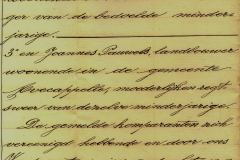 ger van de bedoelde minder-
jarige.
3° en Joannes Pauwels, landbouwer
woonende in de gemeente
Hoecappelle, moederlijken regt-
sweer van dezelve minderjarige.
De gemelde komparanten zich
vereenigd hebbende en door ons